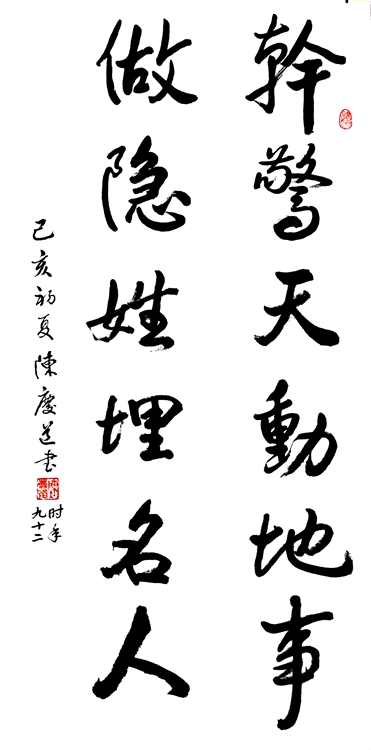 幹驚天動地事
做隐姓埋名人
己亥初夏陳慶道书
时年
九十二